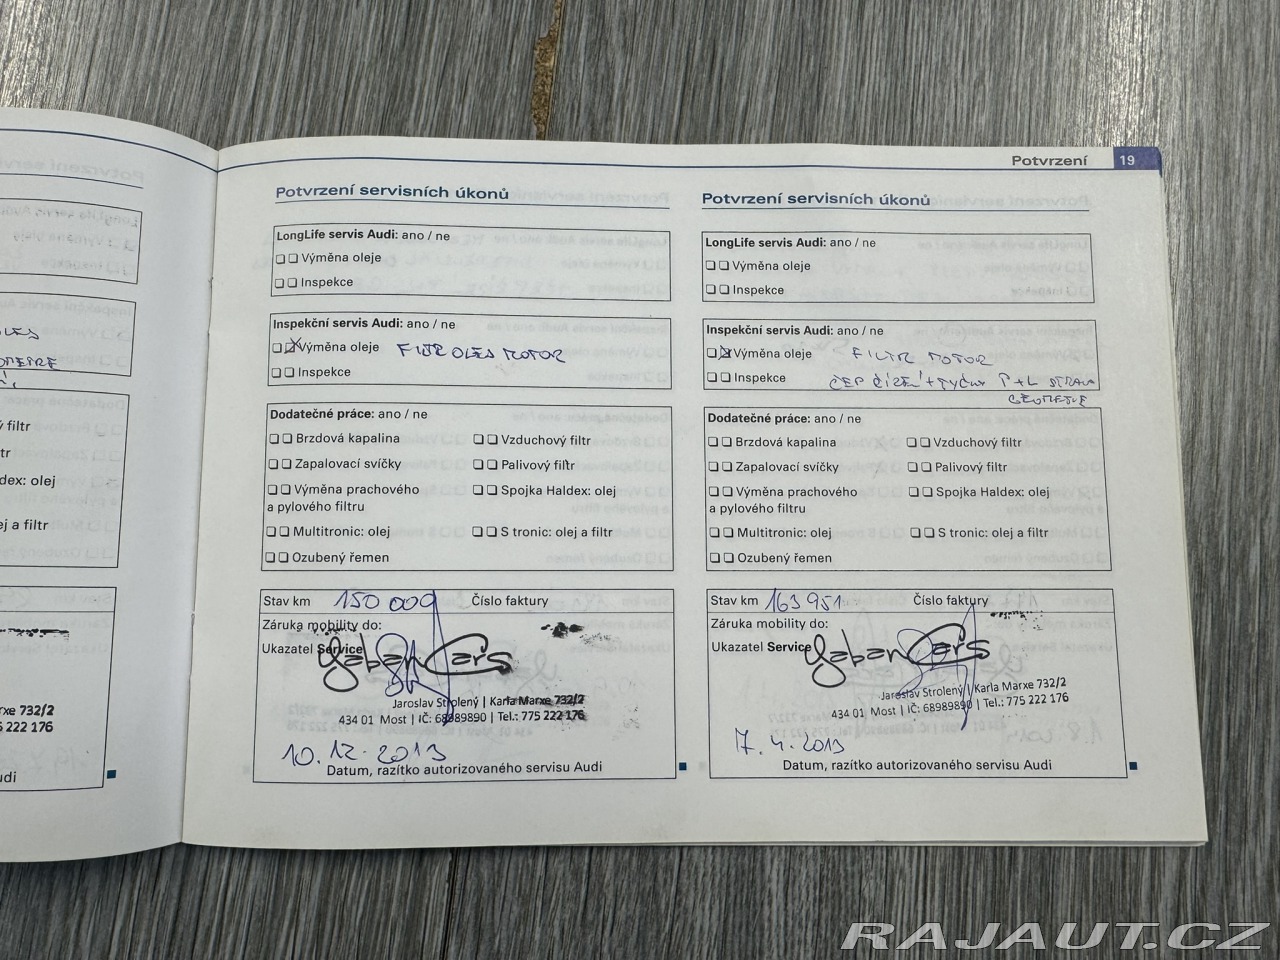 Potvrzení 19
Potvrzení servisních úkonů
LongLife servis Audi: ano / ne
❑ ❑ Výměna oleje
❑ ❑ Inspekce
Inspekční servis Audi: ano / ne
❑ ❑ Výměna oleje FILTR OLEJ MOTOR
❑ ❑ Inspekce
Dodatečné práce: ano / ne
❑ ❑ Brzdová kapalina ❑ ❑ Vzduchový filtr
❑ ❑ Zapalovací svíčky ❑ ❑ Palivový filtr
❑ ❑ Výměna prachového ❑ ❑ Spojka Haldex: olej
a pylového filtru
❑ ❑ Multitronic: olej ❑ ❑ S tronic: olej a filtr
❑ ❑ Ozubený řemen
Stav km 150 000 Číslo faktury
Záruka mobility do:
Ukazatel Service
Gaban Cars
Jaroslav Strolený | Karla Marxe 732/2
434 01 Most | IČ: 68989890 | Tel.: 775 222 176
10.12.2013
Datum, razítko autorizovaného servisu Audi
Potvrzení servisních úkonů
LongLife servis Audi: ano / ne
❑ ❑ Výměna oleje
❑ ❑ Inspekce
Inspekční servis Audi: ano / ne
❑ ❑ Výměna oleje FILTR MOTOR
❑ ❑ Inspekce ČEP ŘÍZENÍ + TYČKY P+L STRANA
GEOMETRIE
Dodatečné práce: ano / ne
❑ ❑ Brzdová kapalina ❑ ❑ Vzduchový filtr
❑ ❑ Zapalovací svíčky ❑ ❑ Palivový filtr
❑ ❑ Výměna prachového ❑ ❑ Spojka Haldex: olej
a pylového filtru
❑ ❑ Multitronic: olej ❑ ❑ S tronic: olej a filtr
❑ ❑ Ozubený řemen
Stav km 163 951 Číslo faktury
Záruka mobility do:
Ukazatel Service
Gaban Cars
Jaroslav Strolený | Karla Marxe 732/2
434 01 Most | IČ: 68989890 | Tel.: 775 222 176
7.4.2013
Datum, razítko autorizovaného servisu Audi
RAJAUT.CZ